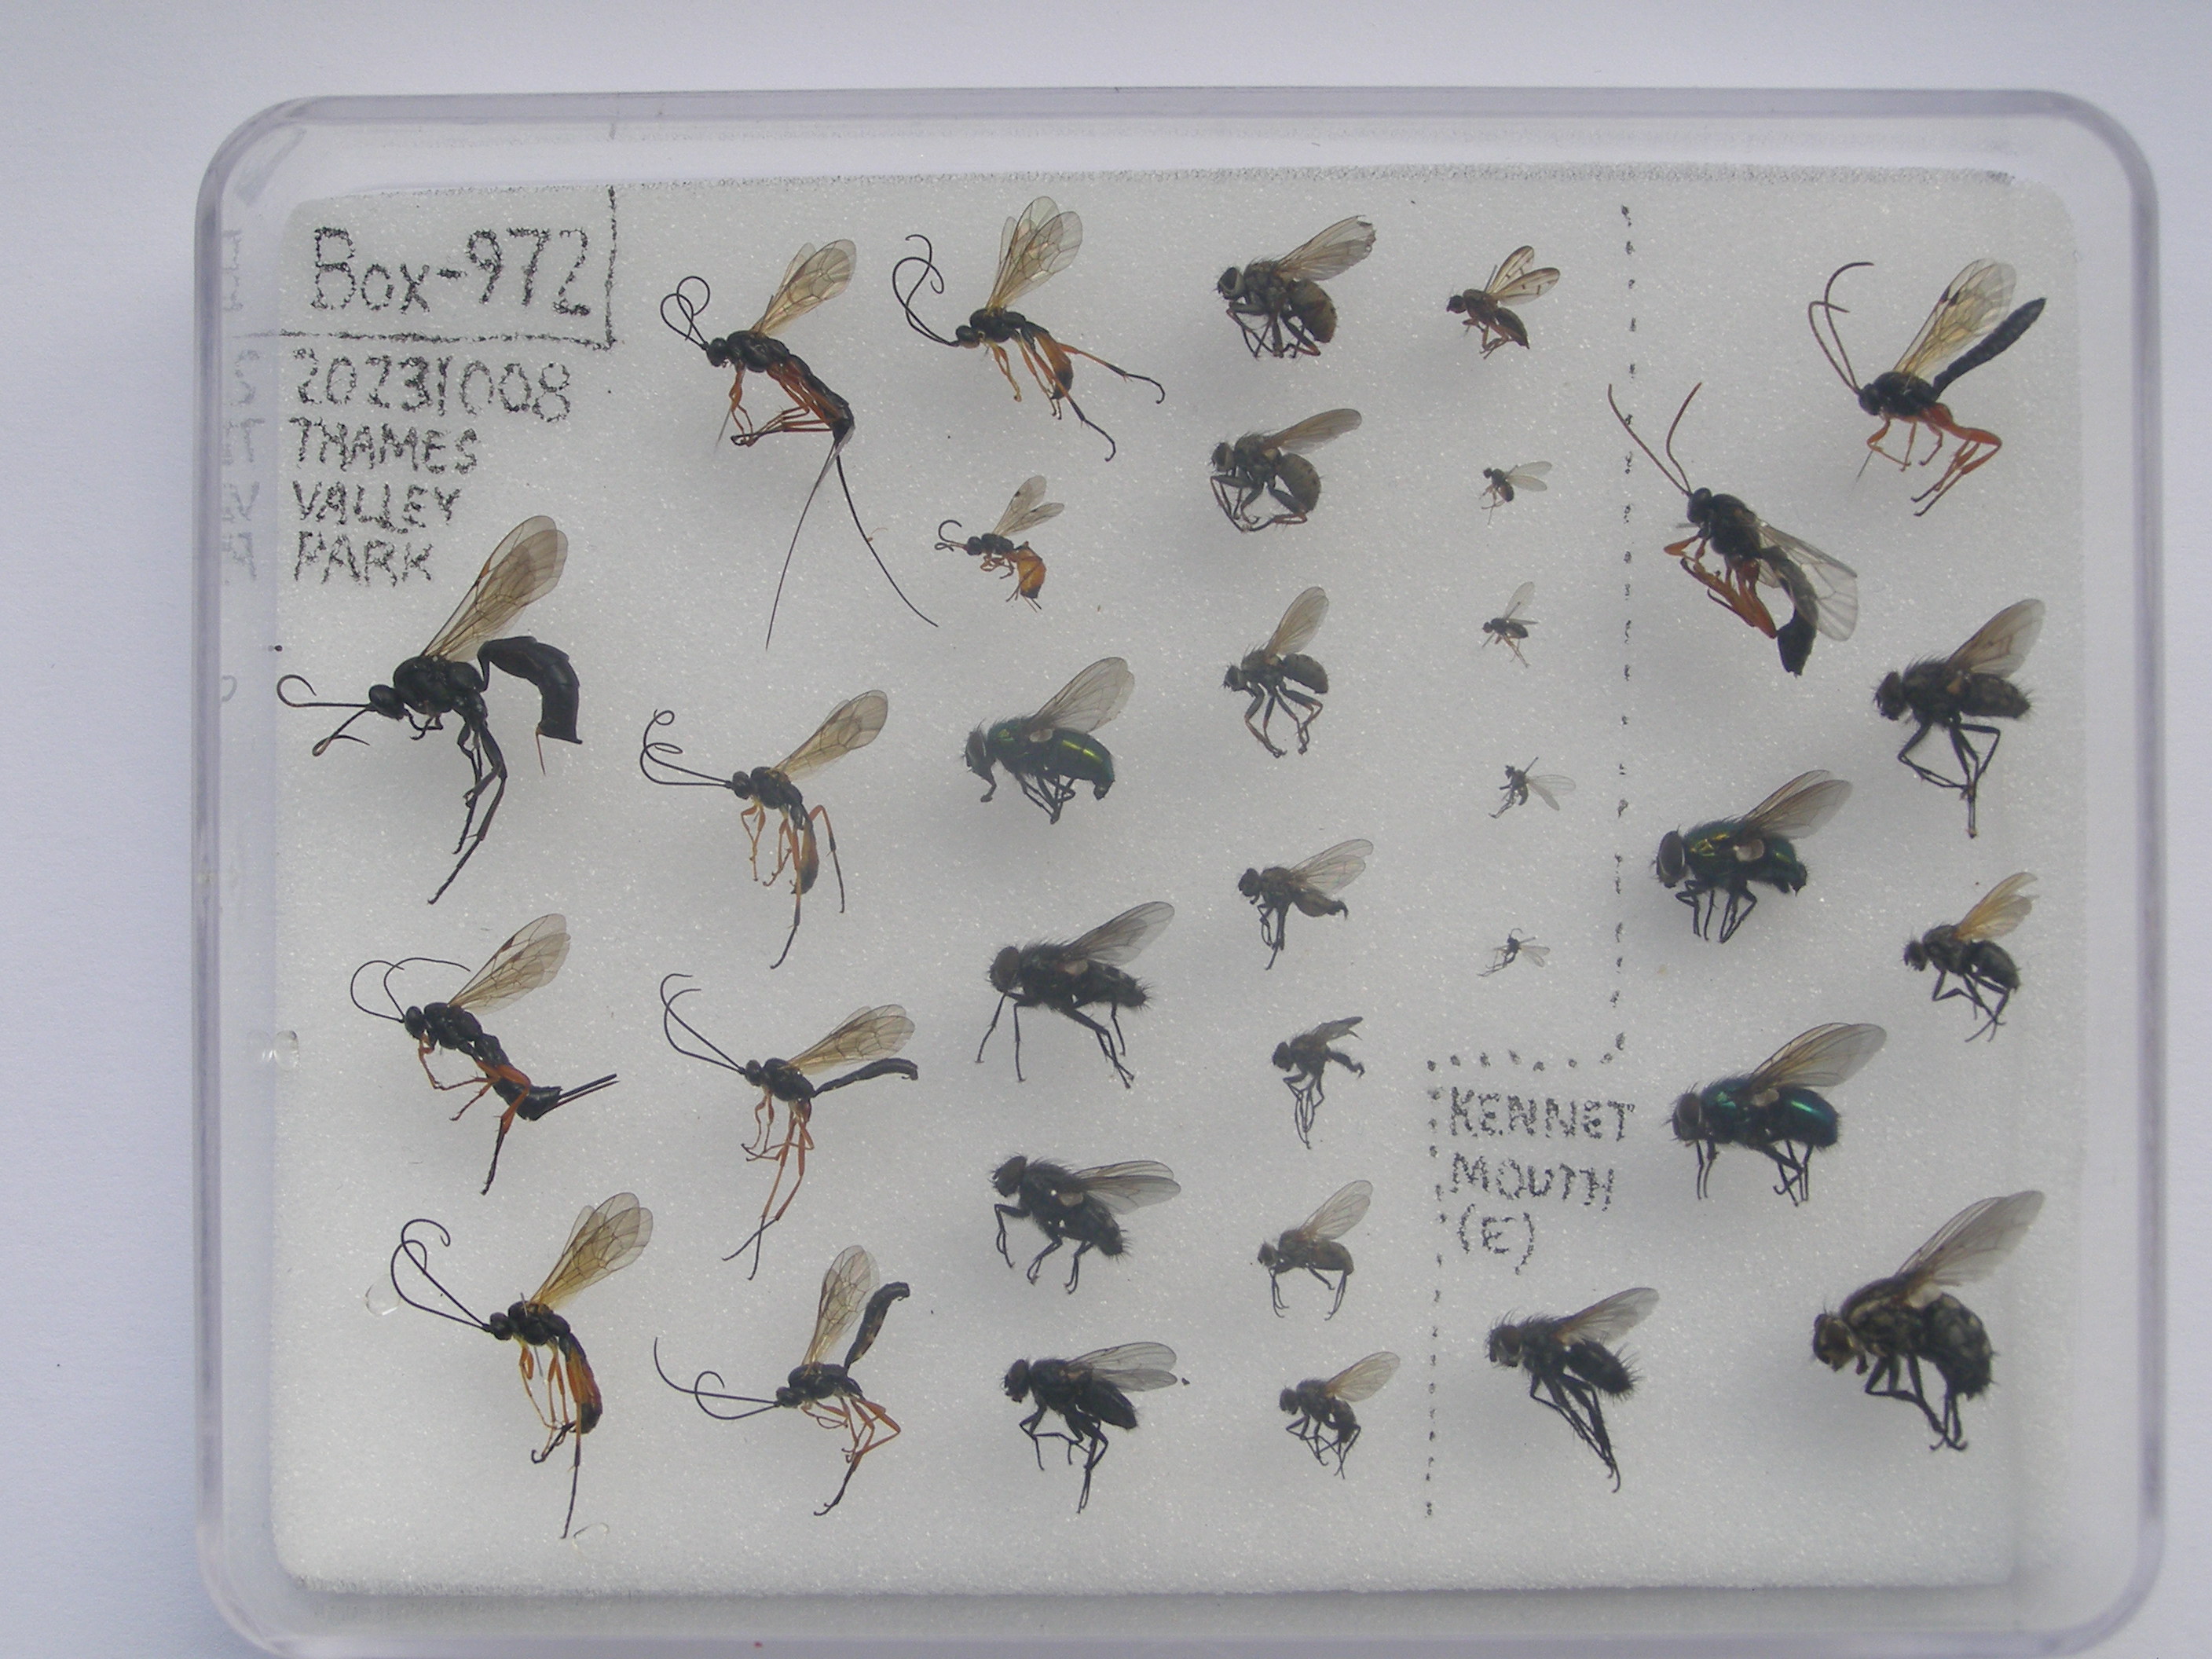 Box-972
20231008
THAMES
VALLEY
PARK
KENNET
MOUTH
(E)